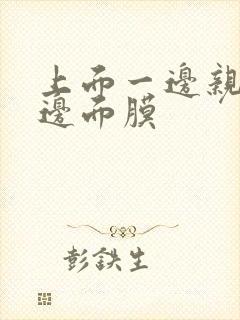 上而一邊親
邊而膜
彭鉄生